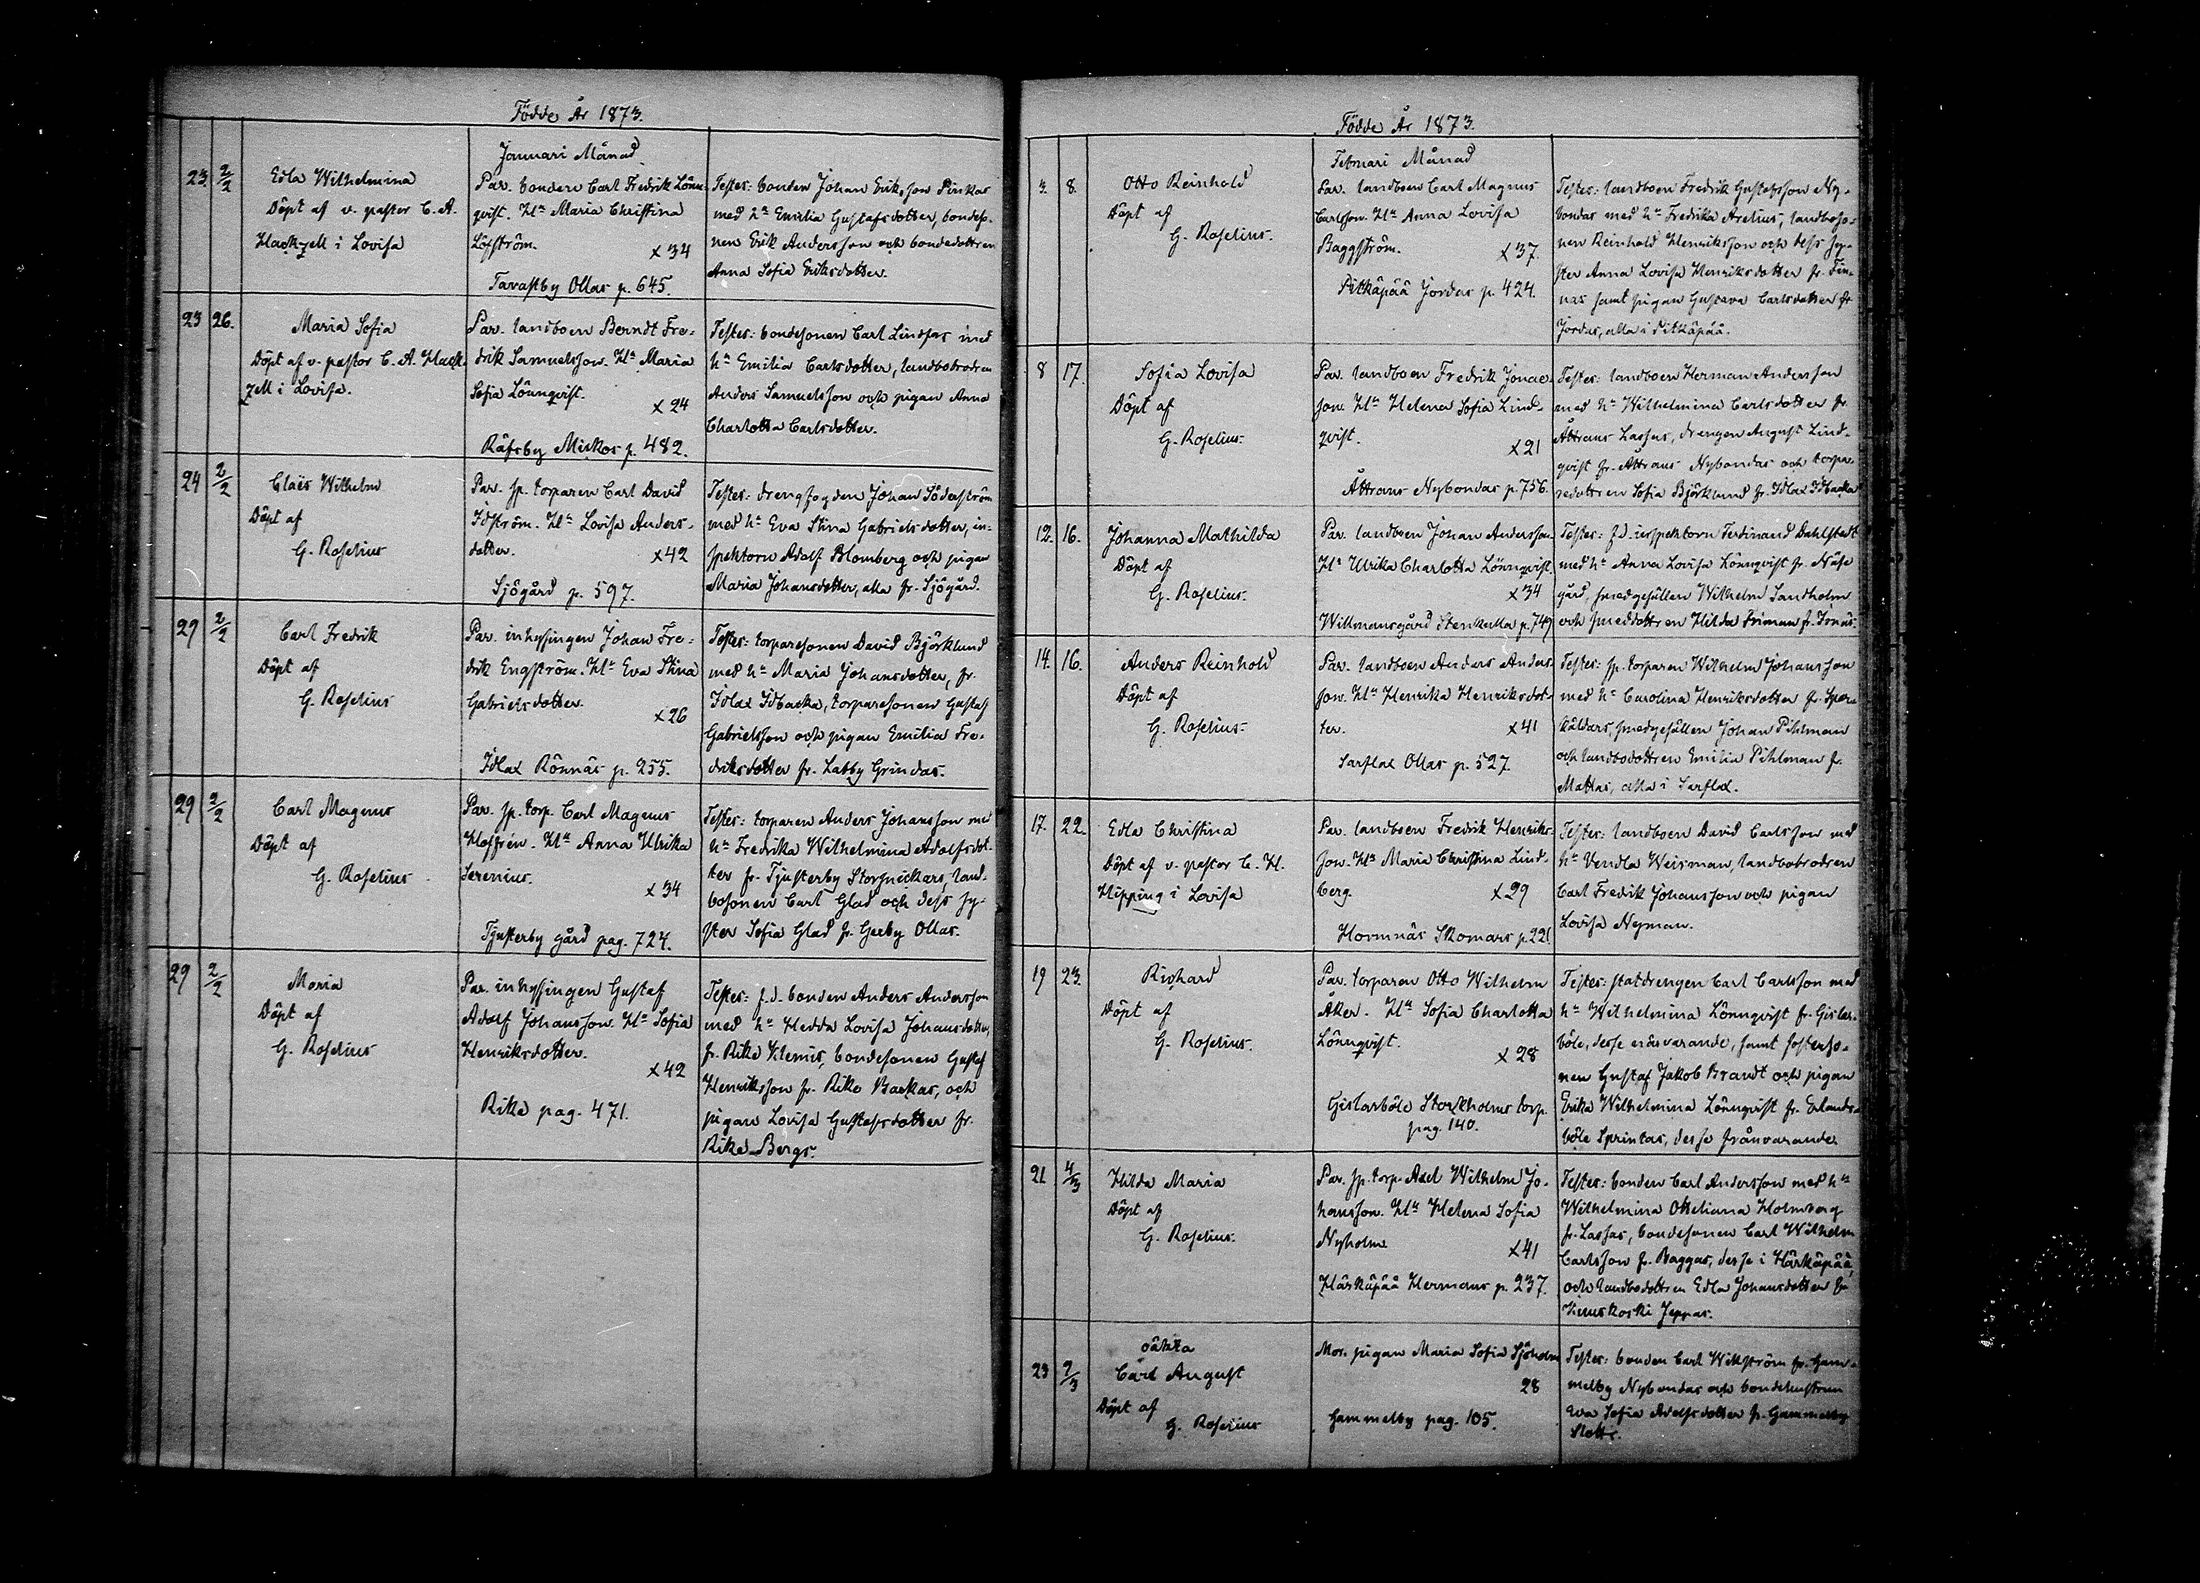 Födde År 1873.
Januari Månad
23. 2/2
Edla Wilhelmina
Döpt af v. pastor C. A.
Hackzell i Lovisa
Par. bonden Carl Fredrik Lönn-
qvist. Hu Maria Christina
Löfström.
x 34
Tavastby Ollas p. 645.
Testes: bonden Johan Eriksson Pinkas
med hu Emilia Gustafsdotter, bondeso-
nen Erik Andersson och bondedottren
Anna Sofia Eriksdotter.
23 26.
Maria Sofia
Döpt af v. pastor C. A. Hack-
zell i Lovisa.
Par. landboen Berndt Fre-
drik Samuelsson. Hu Maria
Sofia Lönnqvist.
x 24
Räfsby Mickos p. 482.
Testes: bondesonen Carl Lindfors med
hu Emilia Carlsdotter, landbobrodren
Anders Samuelsson och pigan Anna
Charlotta Carlsdotter.
24 2/2
Claës Wilhelm
Döpt af
G. Roselius
Par. sp. torparen Carl David
Idström. Hu Lovisa Anders-
dotter.
x 42
Sjögård p. 597.
Testes: drengfogden Johan Söderström
med hu Eva Stina Gabrielsdotter, in-
spektorn Adolf Blomberg och pigan
Maria Johansdotter, alla fr. Sjögård.
29 2/2
Carl Fredrik
Döpt af
G. Roselius
Par. inhysingen Johan Fre-
drik Engström. Hu Eva Stina
Gabrielsdotter.
x 26
Idlax Rönnäs p. 255.
Testes: torparesonen David Björklund
med hu Maria Johansdotter, fr.
Idlax Idbacka, torparesonen Gustaf
Gabrielsson och pigan Emilia Fre-
driksdotter fr. Labby Grindas.
29 2/2
Carl Magnus
Döpt af
G. Roselius.
Par. sp. torp. Carl Magnus
Hoffrén. Hu Anna Ulrika
Serenius.
x 34
Tjusterby gård pag. 724.
Testes: torparen Anders Johansson med
hu Fredrika Wilhelmina Adolfsdot-
ter fr. Tjusterby Storsnickars, land-
bosonen Carl Glad och dess sy-
ster Sofia Glad fr. Gerby Ollas.
29 2/2
Maria
Döpt af
G. Roselius
Par. inhysingen Gustaf
Adolf Johansson. Hu Sofia
Henriksdotter.
x 42
Rike pag. 471.
Testes: f.d. bonden Anders Andersson
med hu Hedda Lovisa Johansdotter,
fr. Rike Klemis, bondesonen Gustaf
Henriksson fr. Rike Backas, och
pigan Lovisa Gustafsdotter fr.
Rike Bergs.
Födde År 1873.
Februari Månad
3. 8.
Otto Reinhold
Döpt af
G. Roselius.
Par. landboen Carl Magnus
Carlsson. Hu Anna Lovisa
Baggström.
x 37.
Pitkäpää Jordas p. 424.
Testes: landboen Fredrik Gustafsson Ny-
bondas med hu Fredrika Arelius, landboso-
nen Reinhold Henriksson och dess sy-
ster Anna Lovisa Henriksdotter fr. Fin-
nas samt pigan Gustava Carlsdotter fr
Jordas, alla i Pitkäpää.
8 17.
Sofia Lovisa
Döpt af
G. Roselius.
Par. landboen Fredrik Jonae-
son. Hu Helena Sofia Lind-
qvist.
x 21
Åttrans Nybondas p. 756.
Testes: landboen Herman Andersson
med hu Wilhelmina Carlsdotter fr.
Åttrans Lassas, drengen August Lind-
qvist fr. Åttrans Nybondas och torpa-
redottren Sofia Björklund fr. Idlax Idbacka
12. 16.
Johanna Mathilda
Döpt af
G. Roselius.
Par. landboen Johan Andersson
Hu Ulrika Charlotta Lönnqvist.
x 34
Willmansgård Stenkulla p. 749
Testes: f.d. inspektorn Ferdinand Dahlstedt
med hu Anna Lovisa Lönnqvist fr. Näse
gård, smedgesällen Wilhelm Sandholm
och smeddottren Hilda Friman fr.
14. 16.
Anders Reinhold
Döpt af
G. Roselius.
Par. landboen Anders Anders-
son. Hu Henrika Henriksdot-
ter.
x 41
Sarflax Ollas p. 527.
Testes: sp. torparen Wilhelm Johansson
med hu Carolina Henriksdotter fr.
smedgesällen Johan Pihlman
och landbodottren Emilia Pihlman fr.
Mattas, alla i Sarflax.
17. 22.
Edla Christina
Döpt af v. pastor C. H.
Hipping i Lovisa
Par. landboen Fredrik Henriks-
son. Hu Maria Christina Lind-
berg.
x 29
Hormnäs Skomars p. 221
Testes: landboen David Carlsson med
hu Vendla Weisman, landbobrodren
Carl Fredrik Johansson och pigan
Lovisa Nyman.
19 23.
Richard
Döpt af
G. Roselius.
Par. torparen Otto Wilhelm
Åker. Hu Sofia Charlotta
Lönnqvist.
x 28
Gislarböle Storkholms torp.
pag. 140.
Testes: statdrengen Carl Carlsson med
hu Wilhelmina Lönnqvist fr. Gislar-
böle, desse närvarande, samt fosterso-
nen Gustaf Jakob Brandt och pigan
Erika Wilhelmina Lönnqvist fr. Erlands-
böle Sprintas, desse frånvarande.
21 4/3
Hilda Maria
Döpt af
G. Roselius.
Par. sp. torp. Axel Wilhelm Jo-
hansson. Hu Helena Sofia
Nyholm
x 41
Härkäpää Hermans p. 237.
Testes: bonden Carl Andersson med hu
Wilhelmina Otteliana Holmberg
fr. Lassas, bondesonen Carl Wilhelm
Carlsson fr. Baggas, desse i Härkäpää
och landbodottren Edla Johansdotter fr
Kuuskoski Jeppas.
oäkta
23 2/3
Carl August
Döpt af
G. Roselius
Mor. pigan Maria Sofia Sjöholm
28
Gammelby pag. 105.
Testes: bonden Carl Wikström fr. Gam-
melby Nybondas och bondehustrun
Eva Sofia Adolfsdotter fr. Gammelby